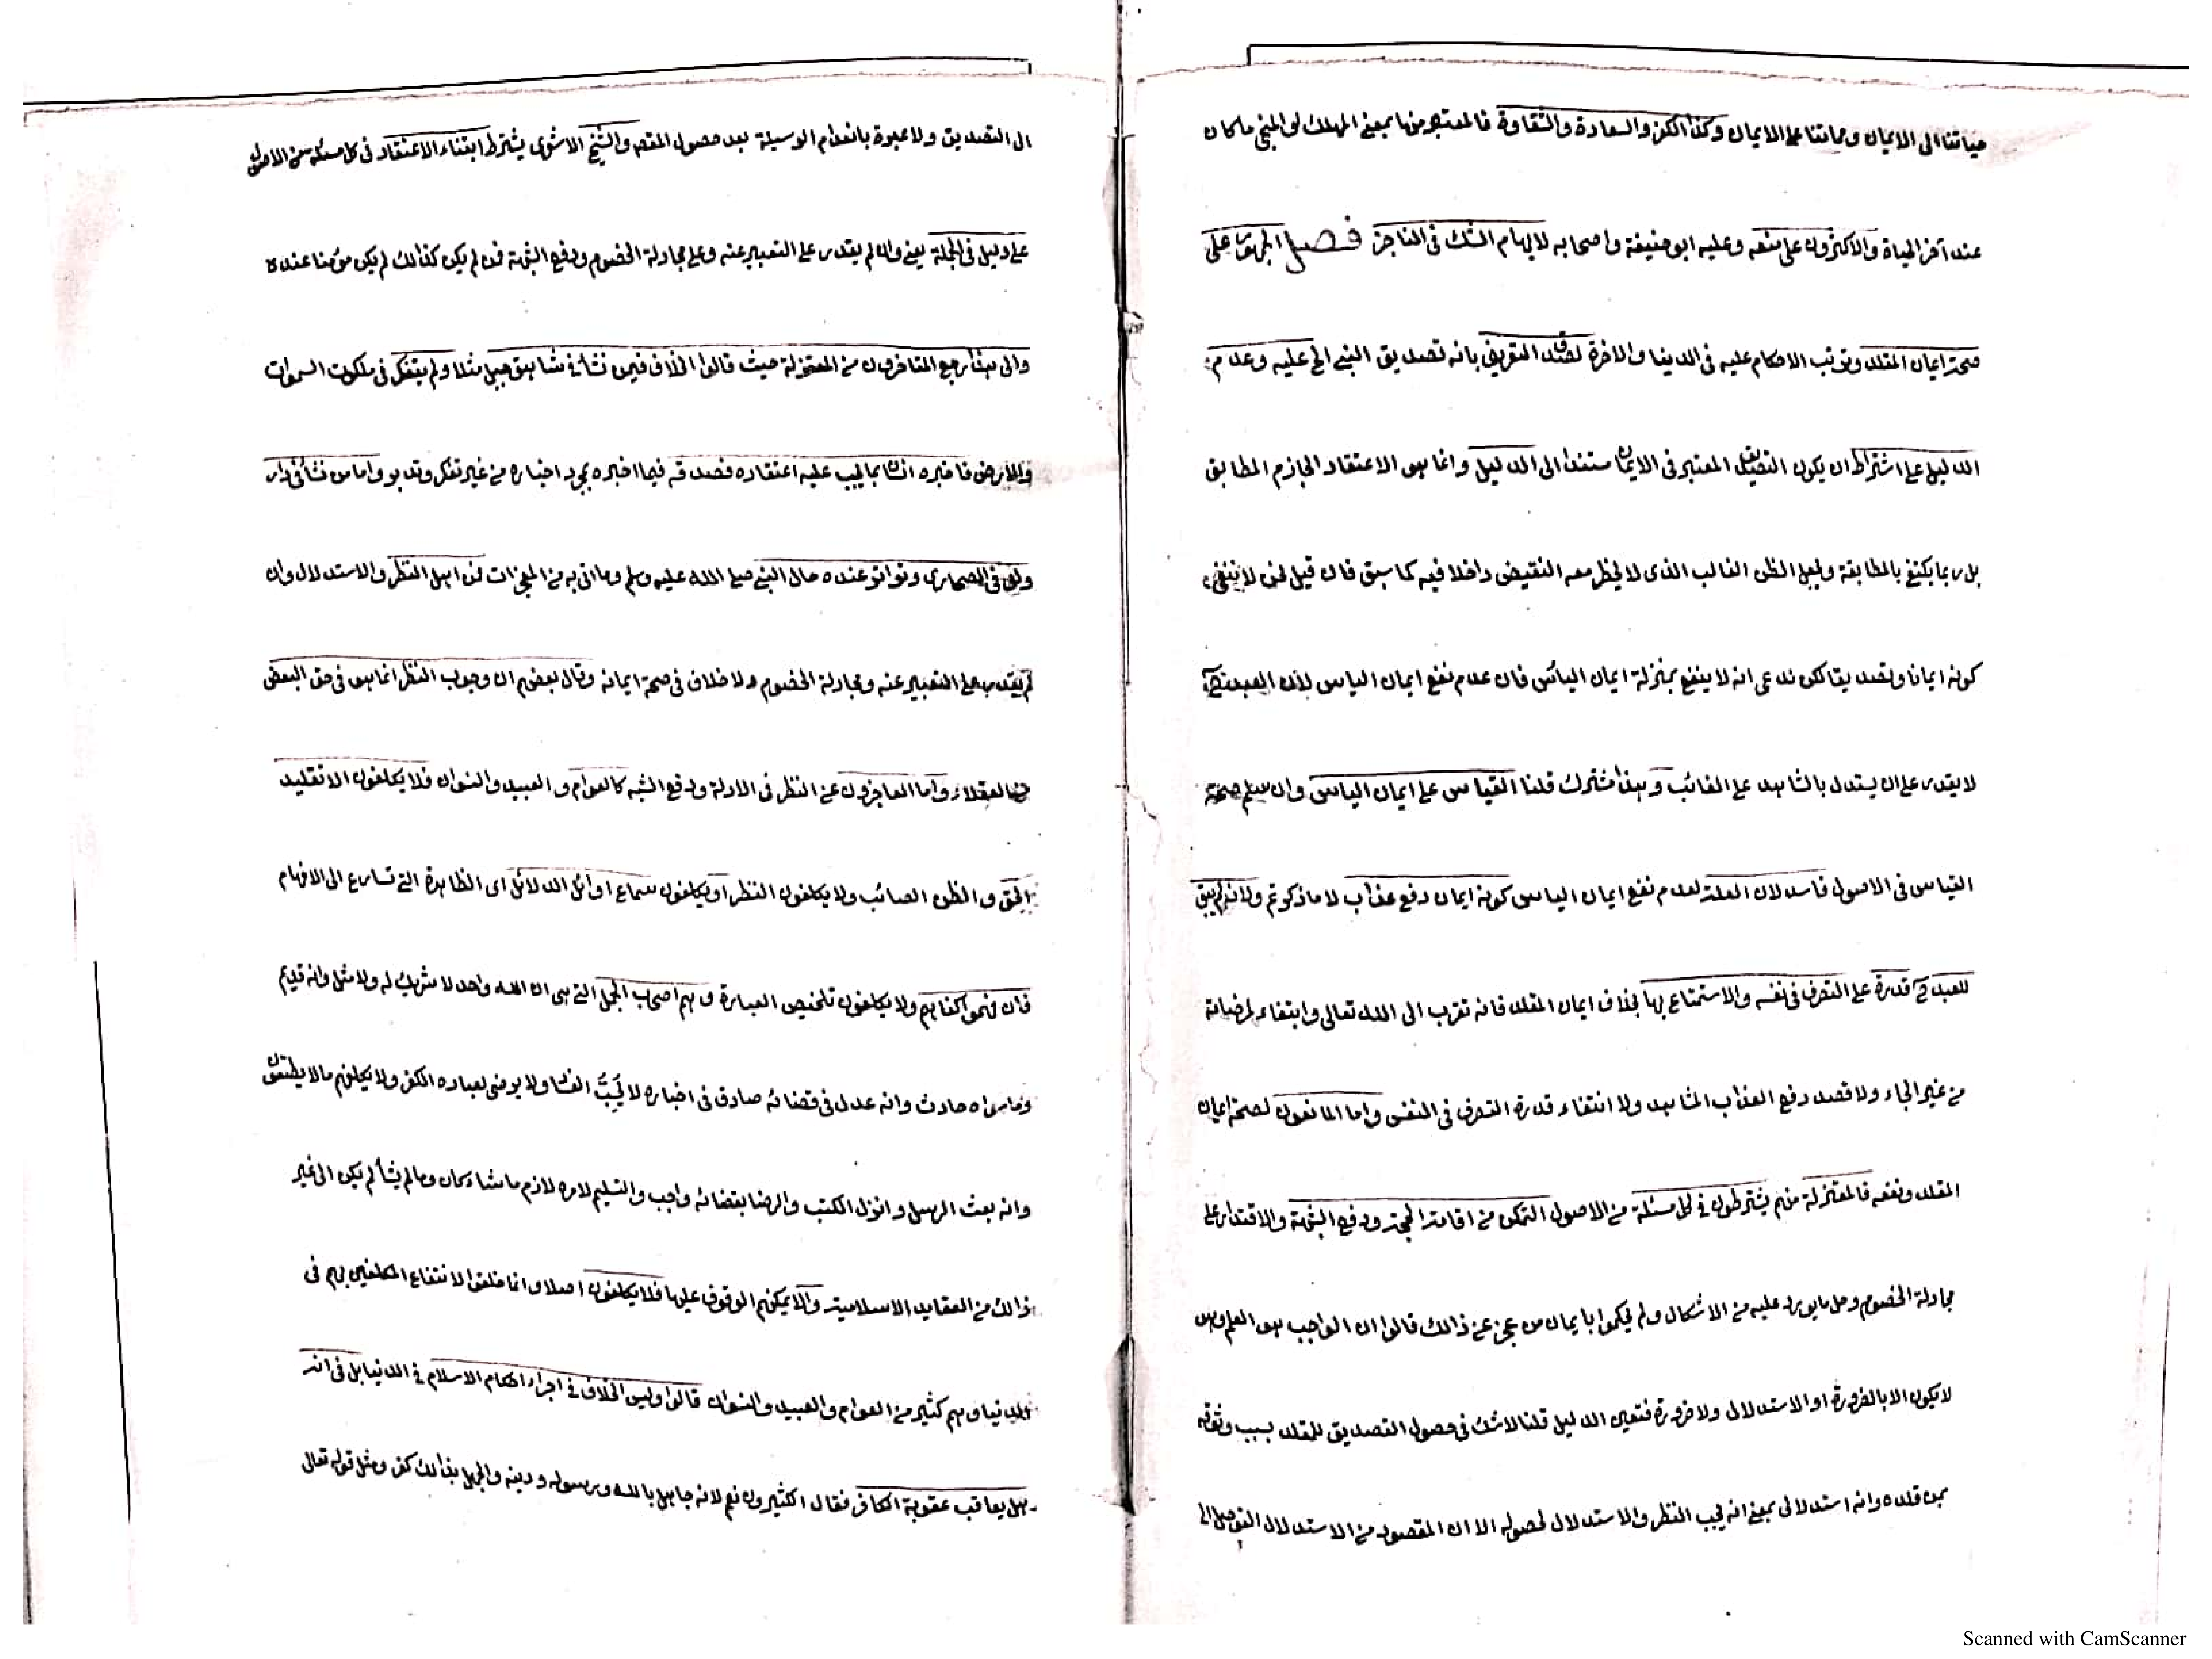 حياتنا الى الايمان ومماتنا على الايمان وكذا الكفر والسعادة والشقاوة فالمعتبر منها بمعنى المهلك او المنجي ما كان
عند آخر الحياة والاكثرون على منعه وعليه ابو حنيفة واصحابه لايهام الشك فى الناجز فصل الجمهور على
صحة ايمان المقلد وترتب الاحكام عليه فى الدنيا والاخرة لصدق التعريف بانه تصديق النبي الخ عليه وعدم
الدليل على اشتراط ان يكون التصديق المعتبر فى الايمان مستندا الى الدليل وانما هى الاعتقاد الجازم المطابق
بل ربما يكتفي بالمطابقة ويجعل الظن الغالب الذى لا يخطر معه النقيض داخلا فيه كما سبق فان قيل نحن لا ننفي
كونه ايمانا وتصديقا لكن ندعى انه لا ينفع بمنزلة ايمان اليائس فان عدم نفع ايمان الياس لان العبد ح
لا يقدر على ان يستدل بالشاهد على الغائب وهذا مشترك قلنا القياس على ايمان الياس وان سلم صحة
القياس فى الاصول فاسد لان العلة لعدم نفع ايمان الياس كونه ايمان دفع عذاب لا ما ذكرتم ولانه لم يبق
للعبد ح قدرة على التصرف فى نفسه والاستمتاع بها بخلاف ايمان المقلد فانه تقرب الى الله تعالى وابتغاء لمرضاته
من غير الجاء ولا قصد دفع العذاب المشاهد ولا انتفاء قدرة التصرف فى النفس واما المانعون لصحة ايمان
المقلد ونفعه فالمعتزلة منهم يشترطون في كل مسئلة من الاصول التمكن من اقامة الحجة ودفع الشبهة والاقتدار على
مجادلة الخصوم وحل ما يورد عليه من الاشكال ولم يحكموا بايمان من عجز عن ذالك قالوا ان الواجب هى العلم وهى
لا يكون الا بالضرورة او الاستدلال ولا ضرورة فتعين الدليل قلنا لا شك فى حصول التصديق للمقلد بسبب وثوقه
بمن قلده وانه استدلالى بمعنى انه يجب النظر والاستدلال لحصوله الا ان المقصود من الاستدلال التوصل الى
الى التصديق ولا عبرة بانعدام الوسيلة بعد حصول المقصم والشيخ الاشعرى يشترط ابتناء الاعتقاد فى كل مسئلة من الاصول
على دليل فى الجملة يعنى وان لم يقدر على التعبير عنه وعلى مجادلة الخصوم ودفع الشبهة فمن لم يكن كذالك لم يكن مؤمنا عنده
والى هذا رجع المتاخرون من المعتزلة حيث قالوا الخلاف فيمن نشا في شاهق جبل مثلا ولم يتفكر فى ملكوت السموات
والارض فاخبره انسان بما يجب عليه اعتقاده فصدقه فيما اخبره بمجرد اخباره من غير تفكر وتدبر واما من نشأ فى دار
ولو فى الصحارى وتواتر عنده حال النبي صلى الله عليه وسلم وما اتى به من المعجزات فمن اهل النظر والاستدلال وان
لم يقدر على التعبير عنه ومجادلة الخصوم ولا خلاف فى صحة ايمانه وقال بعضهم ان وجوب النظر انما هى فى حق البعض
من العقلاء واما العاجزون عن النظر فى الادلة ودفع الشبه كالعوام و العبيد والنسوان فلا يكلفون الا تقليد
المحق و الظن الصائب ولا يكلفون النظر او يكلفون سماع اوائل الدلائل اى الظاهرة التي تسارع الى الافهام
فان فهموا كفاهم ولا يكلفون تلخيص العبارة و هم اصحاب الجمل التي هى ان الله واحد لا شريك له ولا مثل وانه قديم
وما سواه حادث وانه عدل فى قضائه صادق فى اخباره لا يُحِبُّ الفساد ولا يرضى لعباده الكفر ولا يكلفهم ما لا يطيقون
وانه بعث الرسل وانزل الكتب والرضا بقضائه واجب والتسليم لامره لازم ما شاء كان وما لم يشأ لم يكن الى غير
ذالك من العقايد الاسلامية والا يمكنهم الوقوف عليها فلا يكلفون اصلا وانما خلقوا الانتفاع المكلفين بهم فى
الدنيا وهم كثير من العوام والعبيد والنسوان قالوا وليس الخلاف في اجراء احكام الاسلام في الدنيا بل فى انه
هل يعاقب عقوبة الكافر فقال الكثيرون نعم لانه جاهل بالله وبرسوله ودينه والجهل بذالك كفر ومثل قوله تعالى
Scanned with CamScanner